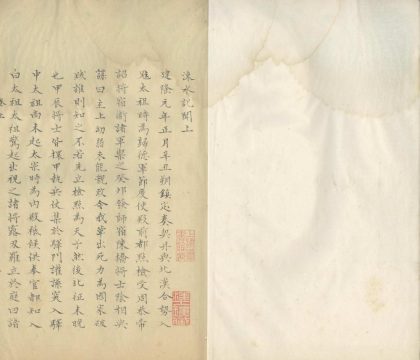 涑水記聞上
建隆元年正月辛丑朔鎮定奏契丹與北漢合勢入
寇太祖時為歸德軍節度使殿前都點檢受周恭帝
詔將宿衛諸軍禦之癸卯發師宿陳橋將士陰相與
謀曰主上幼弱未能親政今我輩出死力為國家破
賊誰則知之不若先立點檢為天子然後北征未晚
也甲辰將士皆擐甲執兵仗集於驛門讙譟突入驛
中太祖尚未起太宗時為內殿祗候供奉官都知入
白太祖太祖驚起出視之諸將露刃羅立於庭曰諸